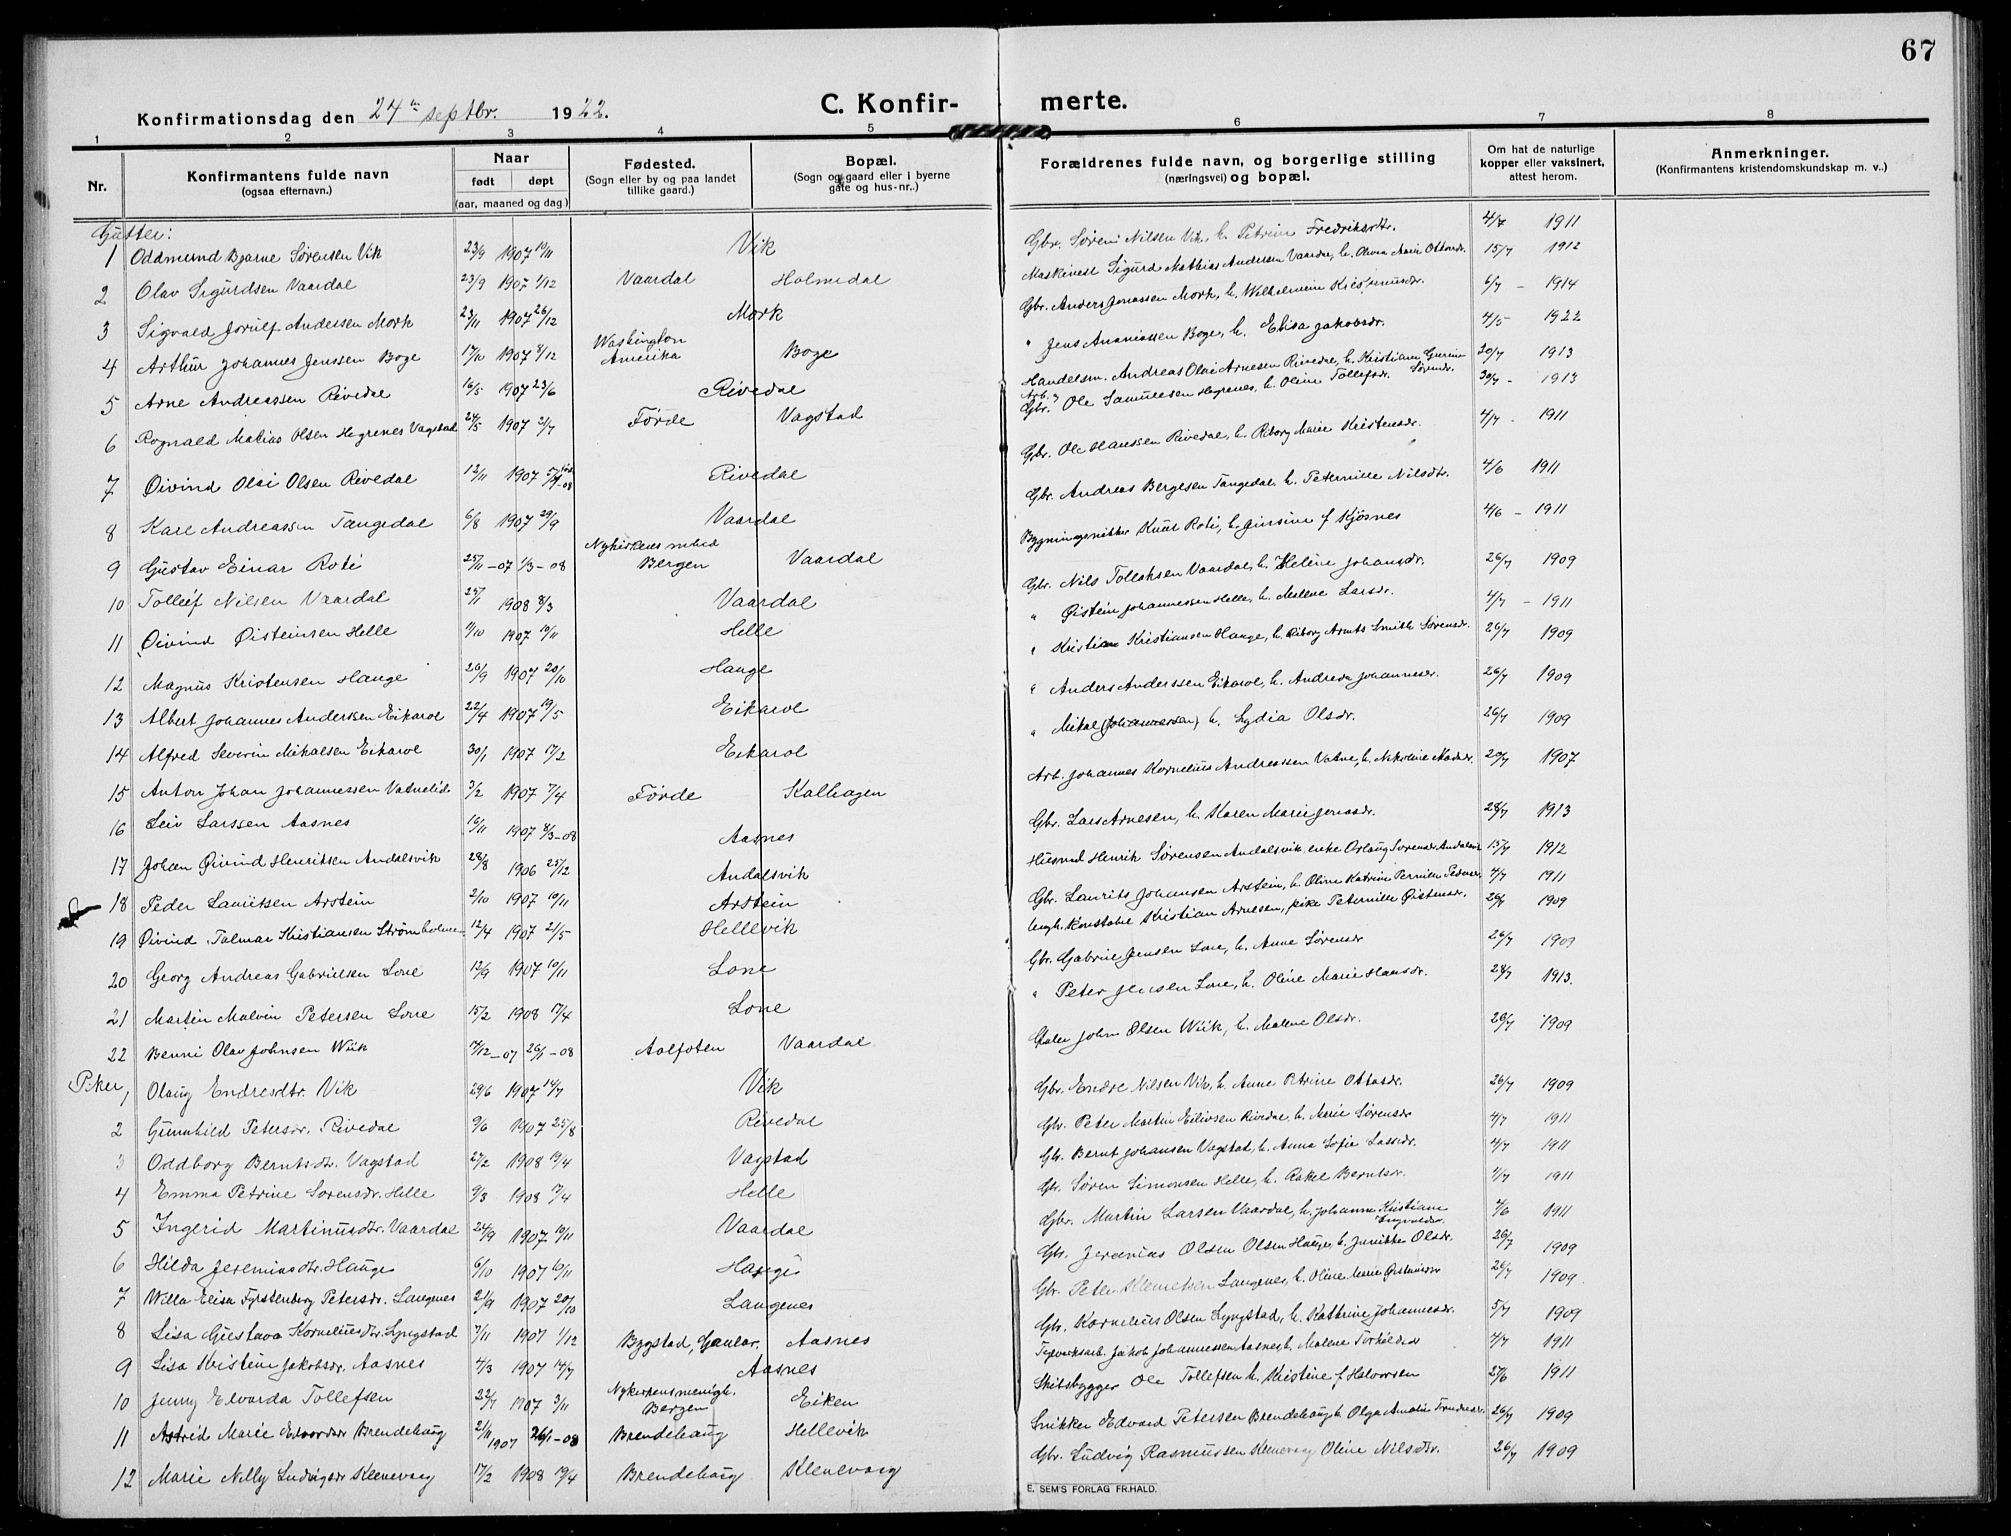 67
C. Konfirmerte.
Konfirmationsdag den 24de septbr. 1922.
1 2 3 4 5 6 7 8
Nr. Konfirmantens fulde navn (ogsaa efternavn). Naar født døpt (aar, maaned og dag) Fødested. (Sogn eller by og paa landet tillike gaard.) Bopæl. (Sogn og gaard eller i byerne gate og hus-nr..) Forældrenes fulde navn, og borgerlige stilling (næringsvei) og bopæl. Om hat de naturlige kopper eller vaksinert, attest herom. Anmerkninger. (Konfirmantens kristendomskundskap m. v..)
Gutter:
1 Oddmund Bjarne Sørensen Vik 23/9 1907 10/11 Vik Gbr. Søren Nilsen Vik, h. Petrine Fredriksdr. 4/7 1911
2 Olav Sigurdsen Vaardal 23/9 1907 1/12 Vaardal Holmedal Sigurd Mathias Andersen Vaardal, h. Olivia Marie 15/7 1912
3 Sigvald Jorulf Andersen Mork 23/11 1907 26/12 Mork Gbr. Anders Jonassen Mork, h. Wilhelmine 6/7 - 1914
4 Arthur Johannes Jenssen Boge 17/10 1907 8/12 Washington Amerika Boge " Jens Ananiassen Boge, h. Elisa Jakobsdr. 4/5 - 1922
5 Arne Andreassen Rivedal 16/5 1907 23/6 Rivedal Handelsm. Andreas Olai Arnesen Rivedal, h. Kristiane Gurine Sørensdr. 30/7 1913
6 Rognald Matias Olsen Hegrenes Vagstad 24/5 1907 2/7 Førde Vagstad Arb. og Gbr. Ole Samuelsen Hegrenes, h. Oline Tollefsdr. 30/7 - 1913
7 Øivind Olai Olsen Rivedal 12/11 1907 Rivedal Gbr. Ole Hanssen Rivedal, h. Riborg Marie Kristensdr. 4/7 - 1911
8 Kare Andreassen Tangedal 6/8 1907 29/9 Vaardal Gbr. Andreas Bergesen Tangedal, h. Peternille Nilsdtr. 4/6 1911
9 Gustav Einar Roti 25/11 -07 1/3-08 Nykirkens mhed Bergen Vaardal Bygningsnikker Knut Roti, h. Jensine f Kjøsnes 4/6 - 1911
10 Tollef Nilsen Vaardal 25/1 1908 8/3 Vaardal Gbr. Nils Tollaksen Vaardal, h. Heline Johansdr. 26/7 1909
11 Øivind Øisteinsen Helle 11/10 1907 10/11 Helle " Øistein Johannessen Helle, h. Malene Larsdr. 4/7 - 1911
12 Magnus Kristensen Hauge 26/9 1907 20/10 Hauge " Kristian Kristiansen Hauge, h. Riborg Sørensdr. 26/7 1909
13 Albert Johannes Anderssen Eikarol 22/4 1907 19/5 Eikarol " Anders Anderssen Eikarol, h. Andrea Johannesdr. 26/7 1909
14 Alfred Severin Mikalsen Eikarol 30/1 1907 17/2 Eikarol " Mikal (Johannessen) h. Lydia Olsdr. 26/7 1909
15 Anton Johan Johannessen Vatnelid 3/2 1907 7/4 Førde Kalhagen Arb. Johannes Kornelius Andreassen Vatne, h. Nikoline 20/7 1907
16 Leiv Larssen Aasnes 16/11 1907 8/3-08 Aasnes Gbr. Lars Arnesen, h. Karen Marie Jonasdr. 28/7 1913
17 Johan Øivind Henriksen Andalsvik 28/8 1906 25/12 Andalsvik Husmd Henrik Sørensen Andalsvik, enke Oslaug Sørensdr. Andalsvik 15/7 1912
18 Peder Lauritsen Arstein 2/10 1907 10/11 Arstein Gbr. Laurits Johansen Arstein, h. Oline Katrine Pernille Pedersdr. 4/7 1911
19 Øivind Talmar Kristiansen Strømholmen 12/4 1907 21/5 Hellevik Konstabel Kristian Arnesen, pike Peternille Øistensdr. 26/7 1909
20 Georg Andreas Gabrielsen Lone 12/9 1907 10/11 Lone Gbr. Gabriel Jensen Lone, h. Anne Sørensdr 26/7 1909
21 Martin Malvin Petersen Lone 15/2 1908 17/4 Lone " Peter Jensen Lone, h. Oline Marie Hansdr. 28/7 1913.
22 Benni Olav Johnsen Wiik 14/12-07 26/1-08 Aalfoten Vaardal John Olsen Wiik, h. Malene Olsdr. 26/7 1909
Piker,
1 Olaug Endresdtr. Vik 29/6 1907 14/7 Vik Gbr. Endre Nilsen Vik, h. Anne Petrine Ottosdr. 26/7 1909
2 Gunnhild Petersdr. Rivedal 9/6 1907 25/8 Rivedal Gbr. Peter Martin Eilivsen Rivedal, h. Marie Sørensdr 4/7 1911
3 Oddborg Berntsdtr. Vagstad 27/2 1908 19/4 Vagstad Gbr. Bernt Johansen Vagstad, h. Anna Sofie Lassedr. 4/7 1911
4 Emma Petrine Sørensdr. Helle 9/3 1908 17/4 Helle Gbr. Søren Simonsen Helle, h. Rakel Berntsdr. 4/7 1911
5 Ingerid Martinusdtr. Vaardal 24/9 1907 10/11 Vaardal Gbr. Martin Larsen Vaardal, h. Johanne Kristiane Ingvaldsdr. 4/6 1911
6 Hilda Jeremiasdtr. Hauge 6/10 1907 10/11 Hauge Gbr. Jeremias Olsen Olsen Hauge, h. Jenrikke Olsdr. 26/7 1909
7 Willa Elisa Fyrstenborg Petersdr. Langenes 21/9 1907 20/10 Langenes Gbr. Peter Klemetsen Langenes, h. Oline Marie Øisteinsdr 26/7 1909.
8 Lisa Gustava Korneliusdtr. Lyngstad 7/11 1907 1/12 Bygstad, Gaular. Aasnes Gbr. Kornelius Olsen Lyngstad, h. Kathrine Johannesdr. 5/7 1909
9 Lisa Kristine Jakobsdr. Aasnes 4/3 1907 14/7 Aasnes Jakob Johannessen Aasnes, h. Malene 4/7 1911
10 Jenny Elvarda Tollefsen 22/7 1907 3/11 Nykirkens menigh. Bergen Eiken Skibsbygger Ole Tollefsen h. Kristine f Halvorsen 27/6 1911
11 Astrid Marie Edvardsdr Brendehaug 21/11 1907 26/1-08 Brendehaug Hellevik Snikker Edvard Petersen Brendehaug h. Olga Amalie 26/7 1909
12 Marie Nelly Ludvigsdr Klenevaag 17/2 1908 19/4 Brendehaug Klenevaag Gbr. Ludvig Rasmussen Klenevaag Oline Nilsdtr. 26/7 1909
E. SEM'S FORLAG FR.HALD.